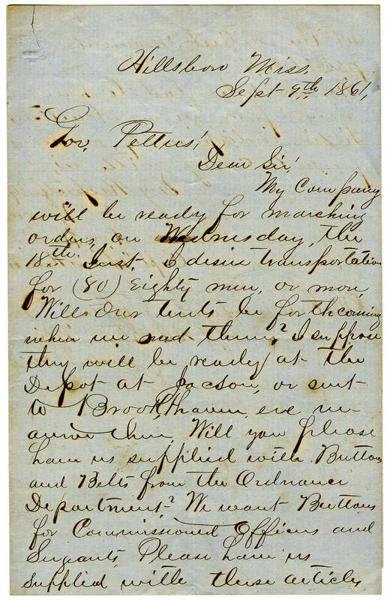 Hillsboro Miss.
Sept 9th 1861,
Gov. Pettus!
Dear Sir!
My Company
will be ready for marching
orders, on Wednesday, the
18th Inst. I desire transportation
for (80) Eighty men, or more
Will our tents be forthcoming
when we need them? I suppose
they will be ready at the
Depot at Jacson, or sent
to Brookhaven, ere we
arrive there. Will you please
have us supplied with Buttons
and Belts from the Ordnance
Department? We want Buttons
for Commissioned Officers and
Surgeants, Please have us
supplied with these articles